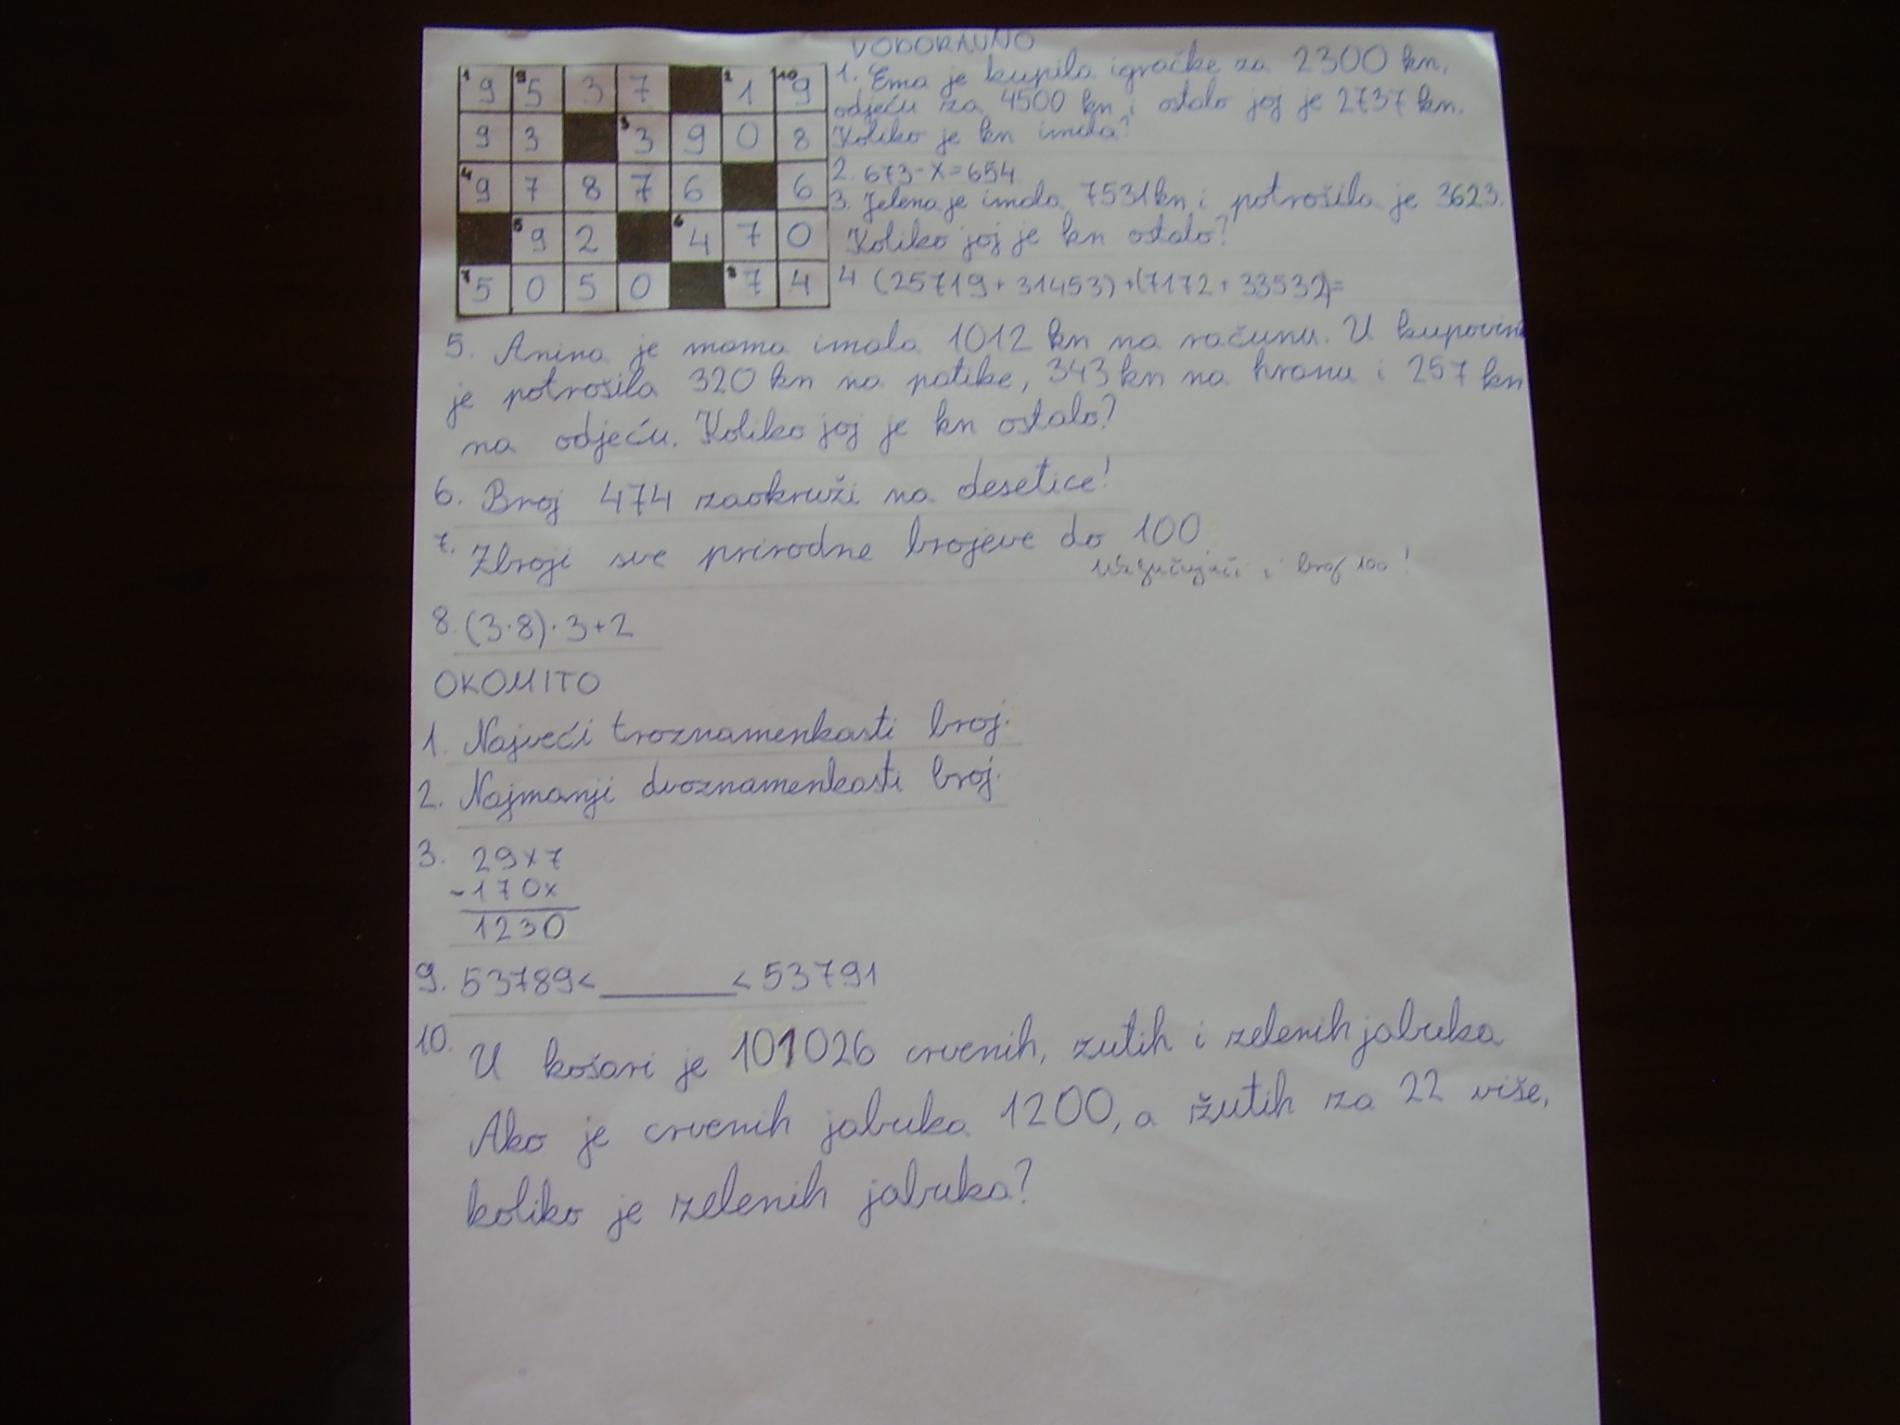 1 9 9 5 3 7 2 1 10 9
9 3 3 3 9 0 8
4 9 7 8 7 6 6
5 9 2 6 4 7 0
7 5 0 5 0 8 7 4
VODORAVNO
1. Ema je kupila igračke za 2300 kn,
odjeću za 4500 kn i ostalo joj je 2737 kn.
Koliko je kn imala?
2. 673-X=654
3. Jelena je imala 7531kn i potrošila je 3623.
Koliko joj je kn ostalo?
4 (25719+31453)+(7172+33532)=
5. Anina je mama imala 1012 kn na računu. U kupovini
je potrošila 320 kn na patike, 343 kn na hranu i 257 kn
na odjeću. Koliko joj je kn ostalo?
6. Broj 474 zaokruži na desetice!
7. Zbroji sve prirodne brojeve do 100
uključujući i broj 100!
8. (3·8)·3+2
OKOMITO
1. Najveći troznamenkasti broj.
2. Najmanji dvoznamenkasti broj.
3. 29x7
-170x
1230
9. 53789<______<53791
10. U košari je 101026 crvenih, žutih i zelenih jabuka
Ako je crvenih jabuka 1200, a žutih za 22 više,
koliko je zelenih jabuka?